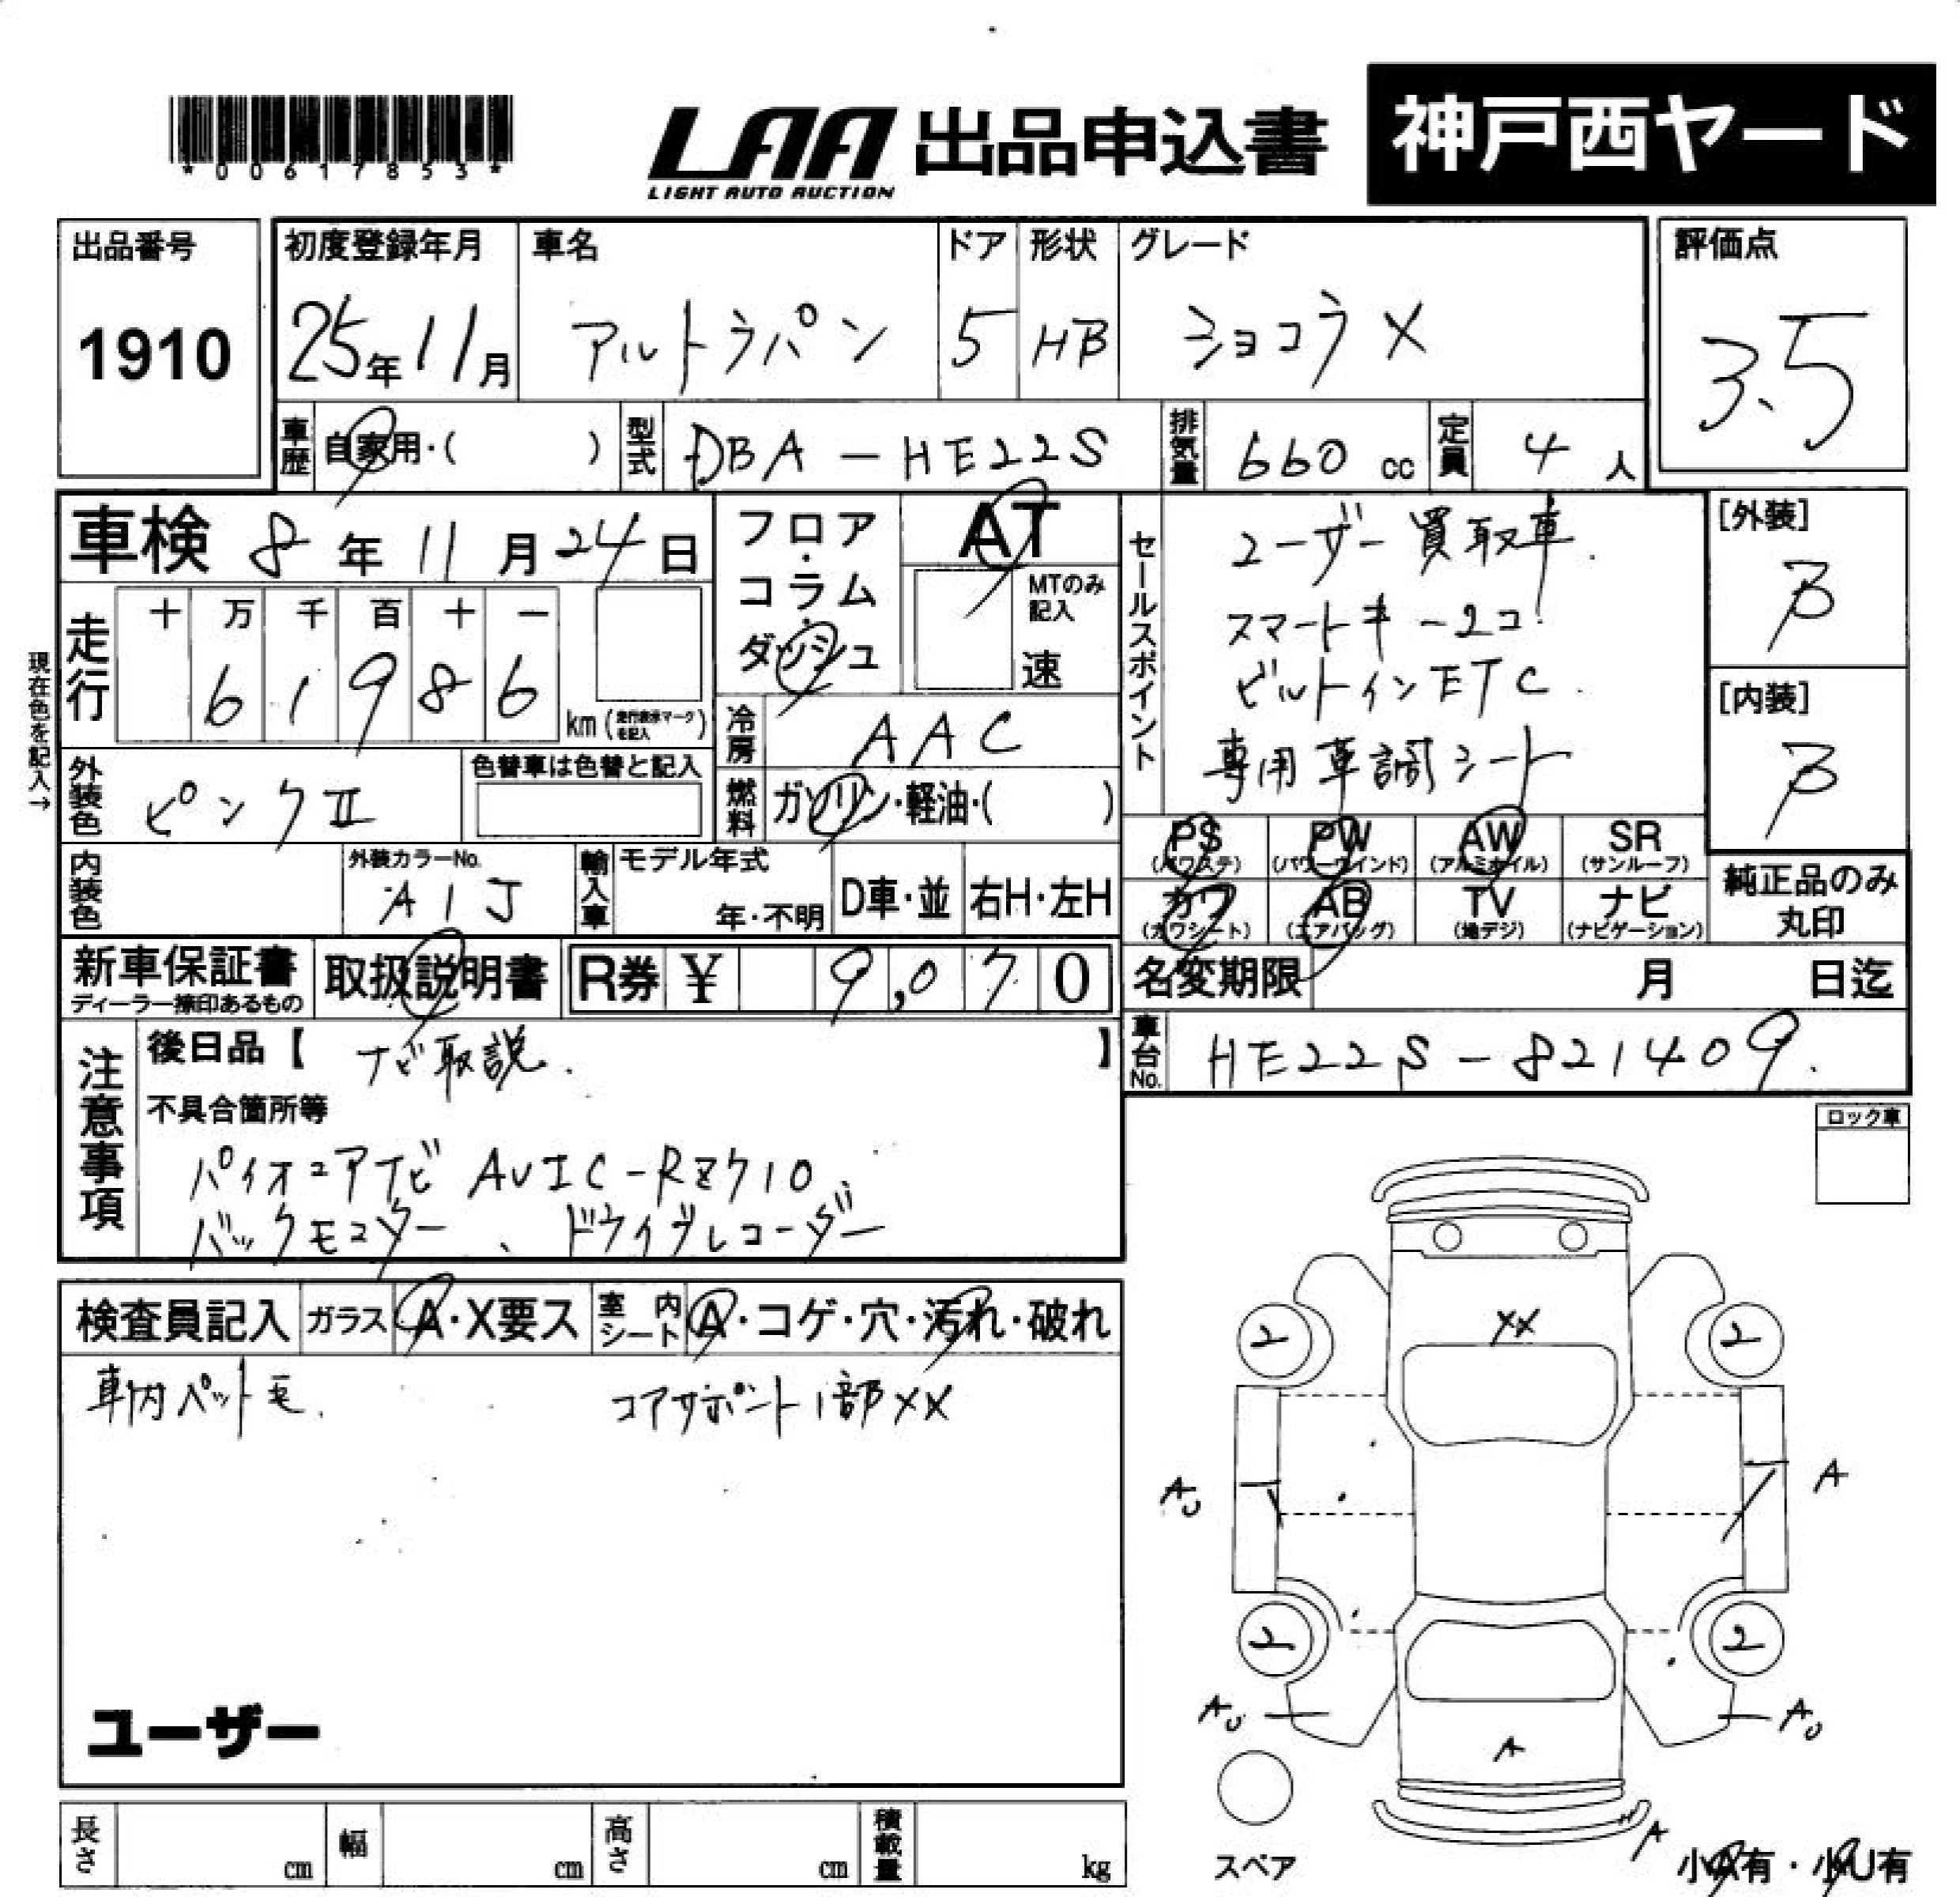 *00617853*
LAA 出品申込書 神戸西ヤード
LIGHT AUTO AUCTION
出品番号 初度登録年月 車名 ドア 形状 グレード 評価点
1910 25年11月 アルトラパン 5 HB ショコラX 3.5
車歴 自家用・( ) 型式 DBA-HE22S 排気量 660 cc 定員 4 人
車検 8年11月24日 フロア・コラム・ダッシュ AT
MTのみ記入 速
セールスポイント
ユーザー買取車.
スマートキー2コ.
ビルトインETC.
専用革調シート
[外装] B
[内装] B
現在色を記入→
走行 十 万 千 百 十 一
6 1 9 8 6 km (走行表示マークを記入)
冷房 AAC
外装色 ピンクⅡ 色替車は色替と記入
燃料 ガソリン・軽油・( )
PS (パワステ) PW (パワーウインド) AW (アルミホイル) SR (サンルーフ)
カワ (カワシート) AB (エアバッグ) TV (地デジ) ナビ (ナビゲーション)
純正品のみ丸印
内装色 外装カラーNo. A1J 輸入車 モデル年式 年・不明 D車・並 右H・左H
新車保証書 ディーラー捺印あるもの 取扱説明書 R券 ¥ 9,070
名変期限 月 日迄
車台No. HE22S-821409.
注意事項
後日品【 ナビ取説. 】
不具合箇所等
パイオニアナビ AVIC-RZ710
バックモニター、ドライブレコーダー
ロック車
検査員記入 ガラス A・X要ス 室内シート A・コゲ・穴・汚れ・破れ
車内ペット毛. コアサポート1部XX
XX
2 2
AU A
2 2
AU AU
A
A
ユーザー
スペア
小A有・小U有
長さ cm 幅 cm 高さ cm 積載量 kg